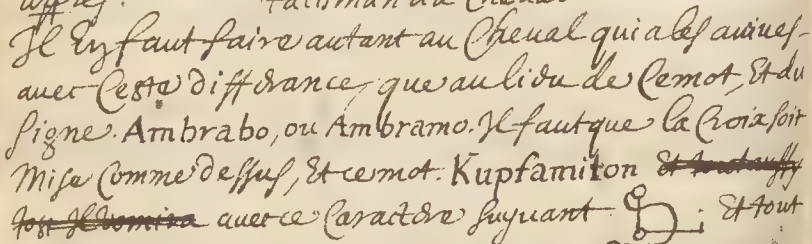 talisman au Cheval
Il En faut faire autant au Cheval qui a les auiues
auec Ceste differance, que au lieu de Ce mot, Et du
signe. Ambrabo, ou Ambramo. Il faut que la Croix soit
mise Comme dessus, Et ce mot. Kupfamiton Et
auec ce Caractere suyuant Et tout